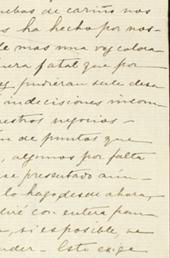 uebas de cariño nos
os ha hecho por nos-
de mas una vez coloca
nera fatal que por
pudieran sele desa
indecisiones incon
uestros negocios -
n de puntos que
, algunos por falta
se presentado aún -
lo hago desde ahora,
é con entera fran
, si es posible, se
nder - Esto exige